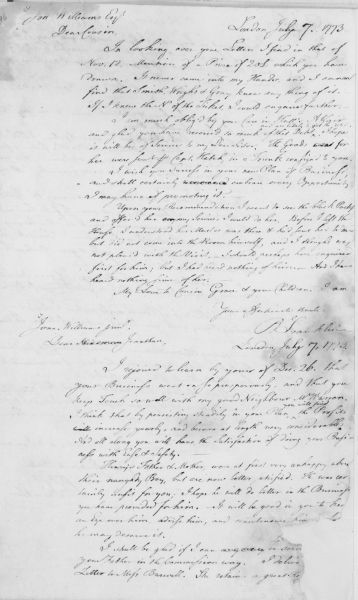 Jon Williams Esqr
London July 7. 1773
Dear Cousin,
In looking over your Letters I find in that of
Nov. 12. Mention of a Prize of 20£ which you have
drawn. It never came into my Hands, and I cannot
find that Smith, Wright & Gray know any thing of it.
If I knew the No of the Ticket I would enquire farther.
I am much oblig'd by your Care in
and glad you have recover'd so much of that Debt,
is will be of Service to my dear Sister. The Goods for
her were sent Capt. Hatch, in a Trunk consign'd to you.
I wish you Success in your new Plan of Business,
and shall certainly embrace every Opportunity
I may have of promoting it.
Upon your Recommendation I went to see the black Poetess
and offer'd her my Services I could do her. Before I left the
House, I understood her Master was there & had sent her to me
but did not come into the Room himself, and I thought was
not pleased with the Visit. I should perhaps have enquired
first for him; but I had heard nothing of him. And I have
heard nothing since of her.
My Love to Cousin Grace & your Children, I am
Your Affectionate Uncle
Jona. Williams junr.
London, July 7. 1773
Dear Jonathan,
I rejoiced to learn by yours of Dec. 26. that
your Business went on so prosperously, and that you
keep Touch so well with my good Neighbour Mr Warren.
I think that by persisting steadily in your Plan, the
increase yearly, and become at length very considerable.
And all along you will have the Satisfaction of doing your Busi-
ness with Ease & Safety.
Father & Mother, were at first very unhappy about
their naughty Boy, but are now better satisfied. He was cer-
tainly unfit for you. I hope he will do better in the Business
you have provided for him. It will be good in you to have
an Eye over him, advise him, and countenance him
he may deserve it.
I shall be glad if I can to serve
your Father in the Commission way. I
Letter to Messrs Barwell. The